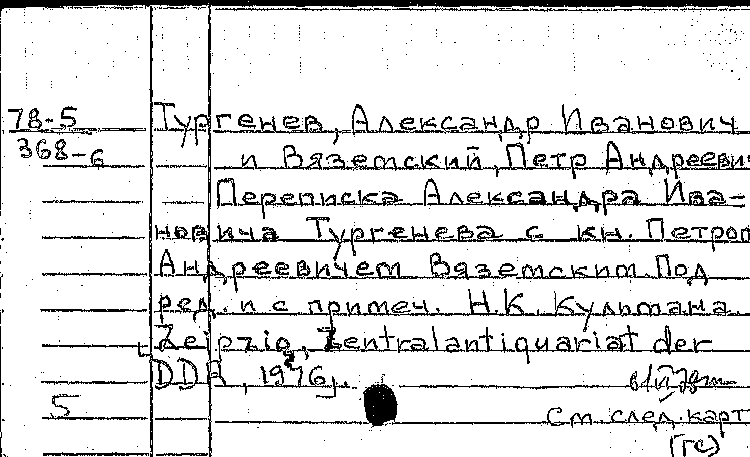 78-5
368-6
Тургенев, Александр Иванович
и Вяземский, Петр Андреевич
Переписка Александра Ива-
новича Тургенева с кн. Петром
Андреевичем Вяземским. Под
ред. и с примеч. Н.К. Кульмана.
[Leipzig, Zentralantiquariat der
DDR, 1976].
5
См. след. карт
(гс)